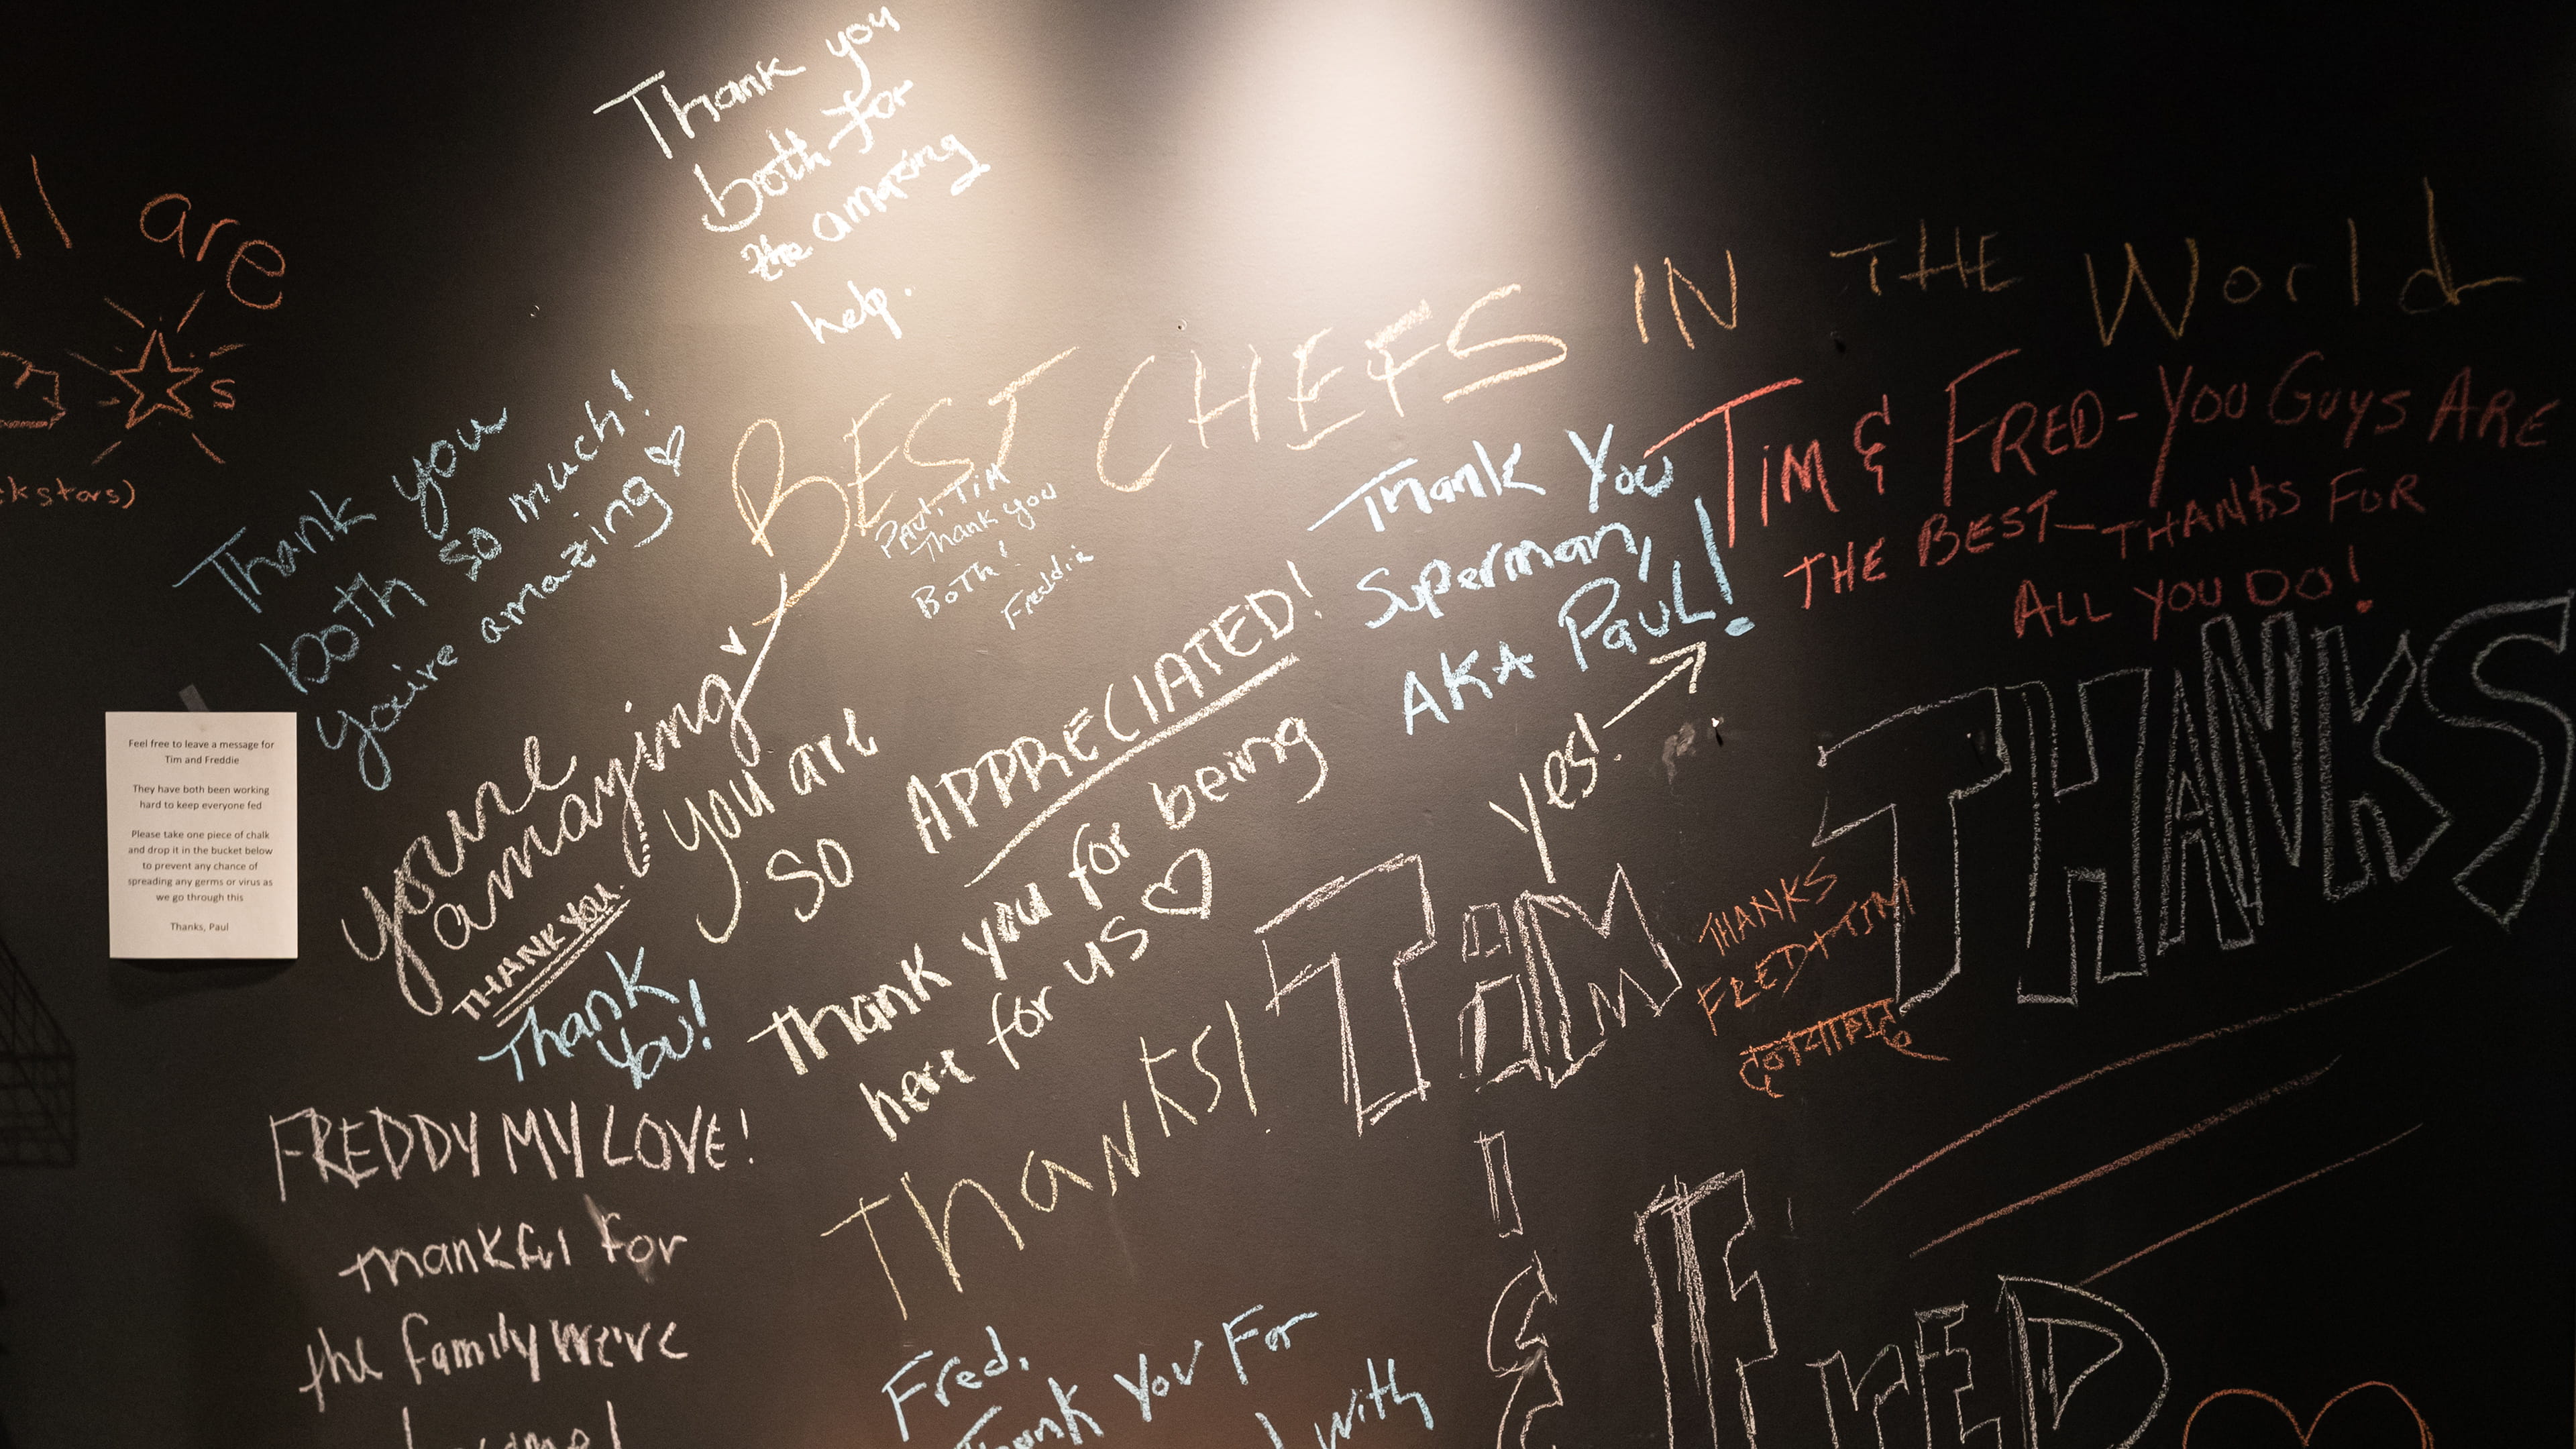 ll are
s
ckstars)
Thank you
both for
the amazing
help.
Thank you
both so much!
you're amazing
BEST CHEFS IN THE World
PAUL, TIM
Thank you
Both!
Freddie
Thank You
Superman,
AKA PAUL!
yes!
TIM & FRED - YOU GUYS ARE
THE BEST - THANKS FOR
ALL YOU DO!
Feel free to leave a message for
Tim and Freddie
They have both been working
hard to keep everyone fed
Please take one piece of chalk
and drop it in the bucket below
to prevent any chance of
spreading any germs or virus as
we go through this
Thanks, Paul
you're
amazing
THANK YOU.
you are
so APPRECIATED!
Thank you for being
here for us
Thank
You!
THANKS
TIM
&
FrED
THANKS
FRED + TIM
FREDDY MY LOVE!
thankful for
the family we've
Thanks!
Fred,
Thank You For
with